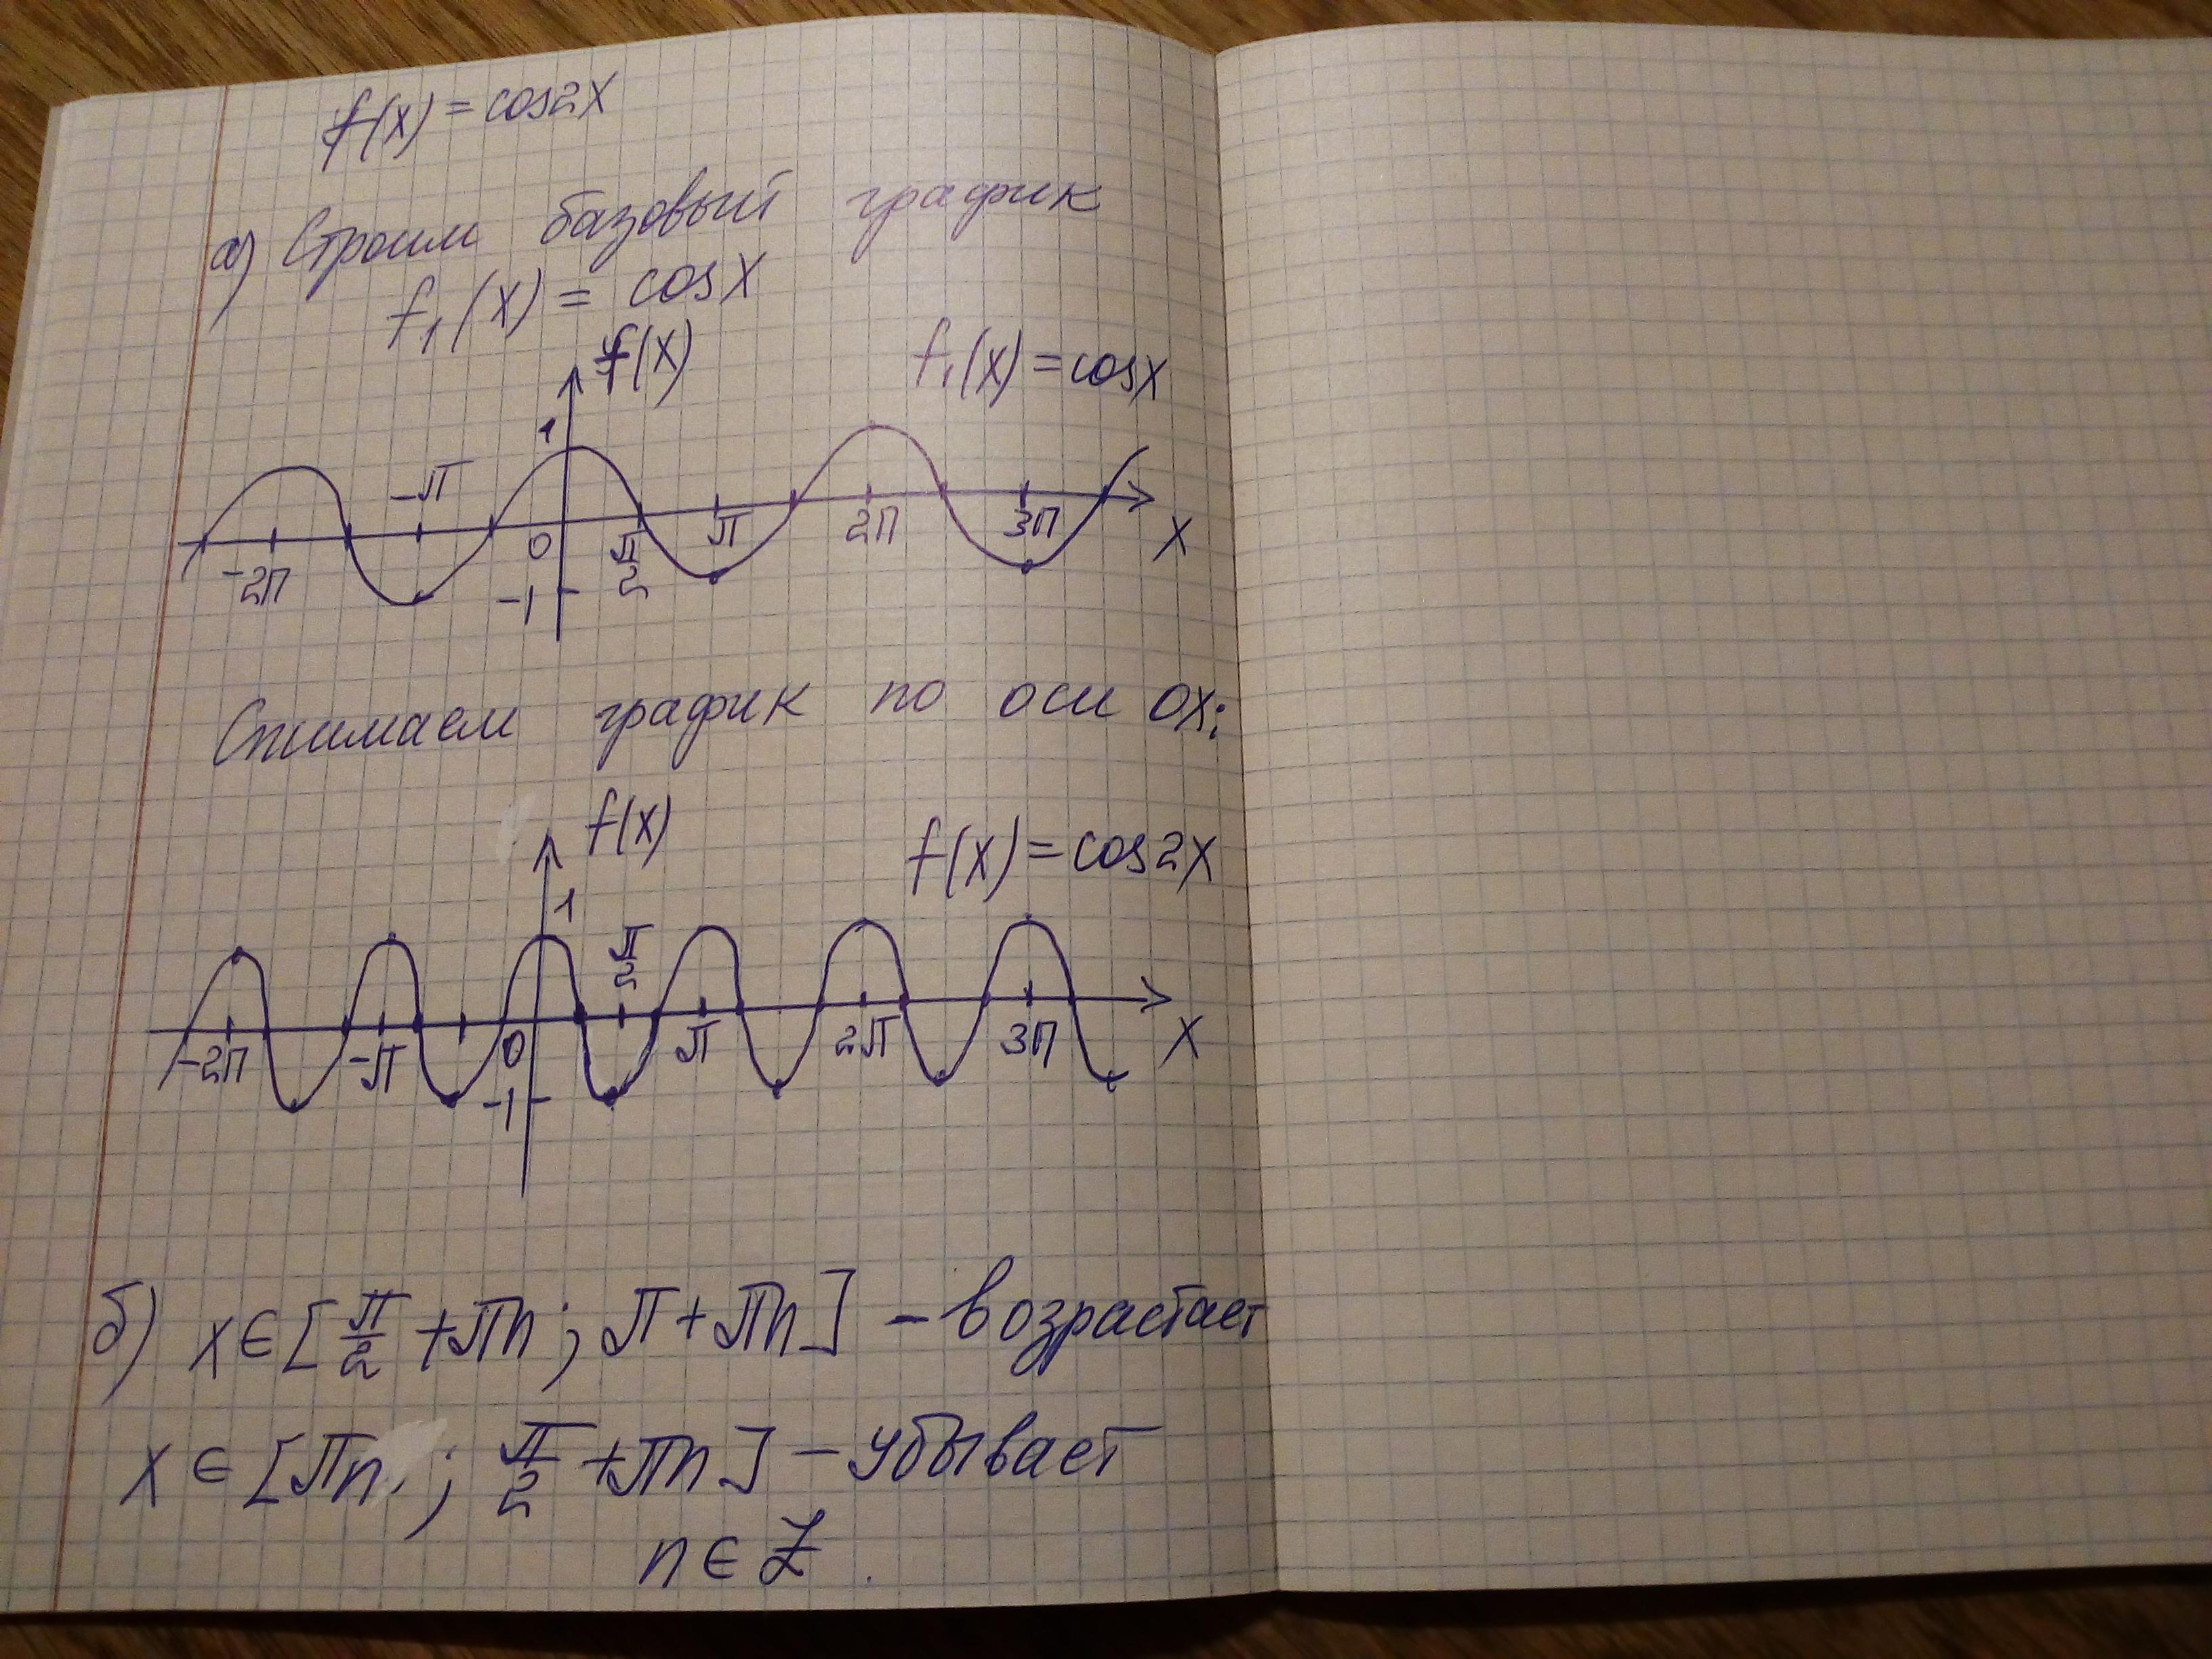 f(x) = cos2x
а) Строим базовый график
f₁(x) = cosx
f(x)
f₁(x) = cosx
1
-π
-2π
0
π/2
π
2π
3π
x
-1
Сжимаем график по оси ox:
f(x)
f(x) = cos2x
1
π/2
-2π
-π
0
π
2π
3π
x
-1
б) x∈[π/2 + πn; π + πn] – возрастает
x∈[πn; π/2 + πn] – убывает
n∈Z.